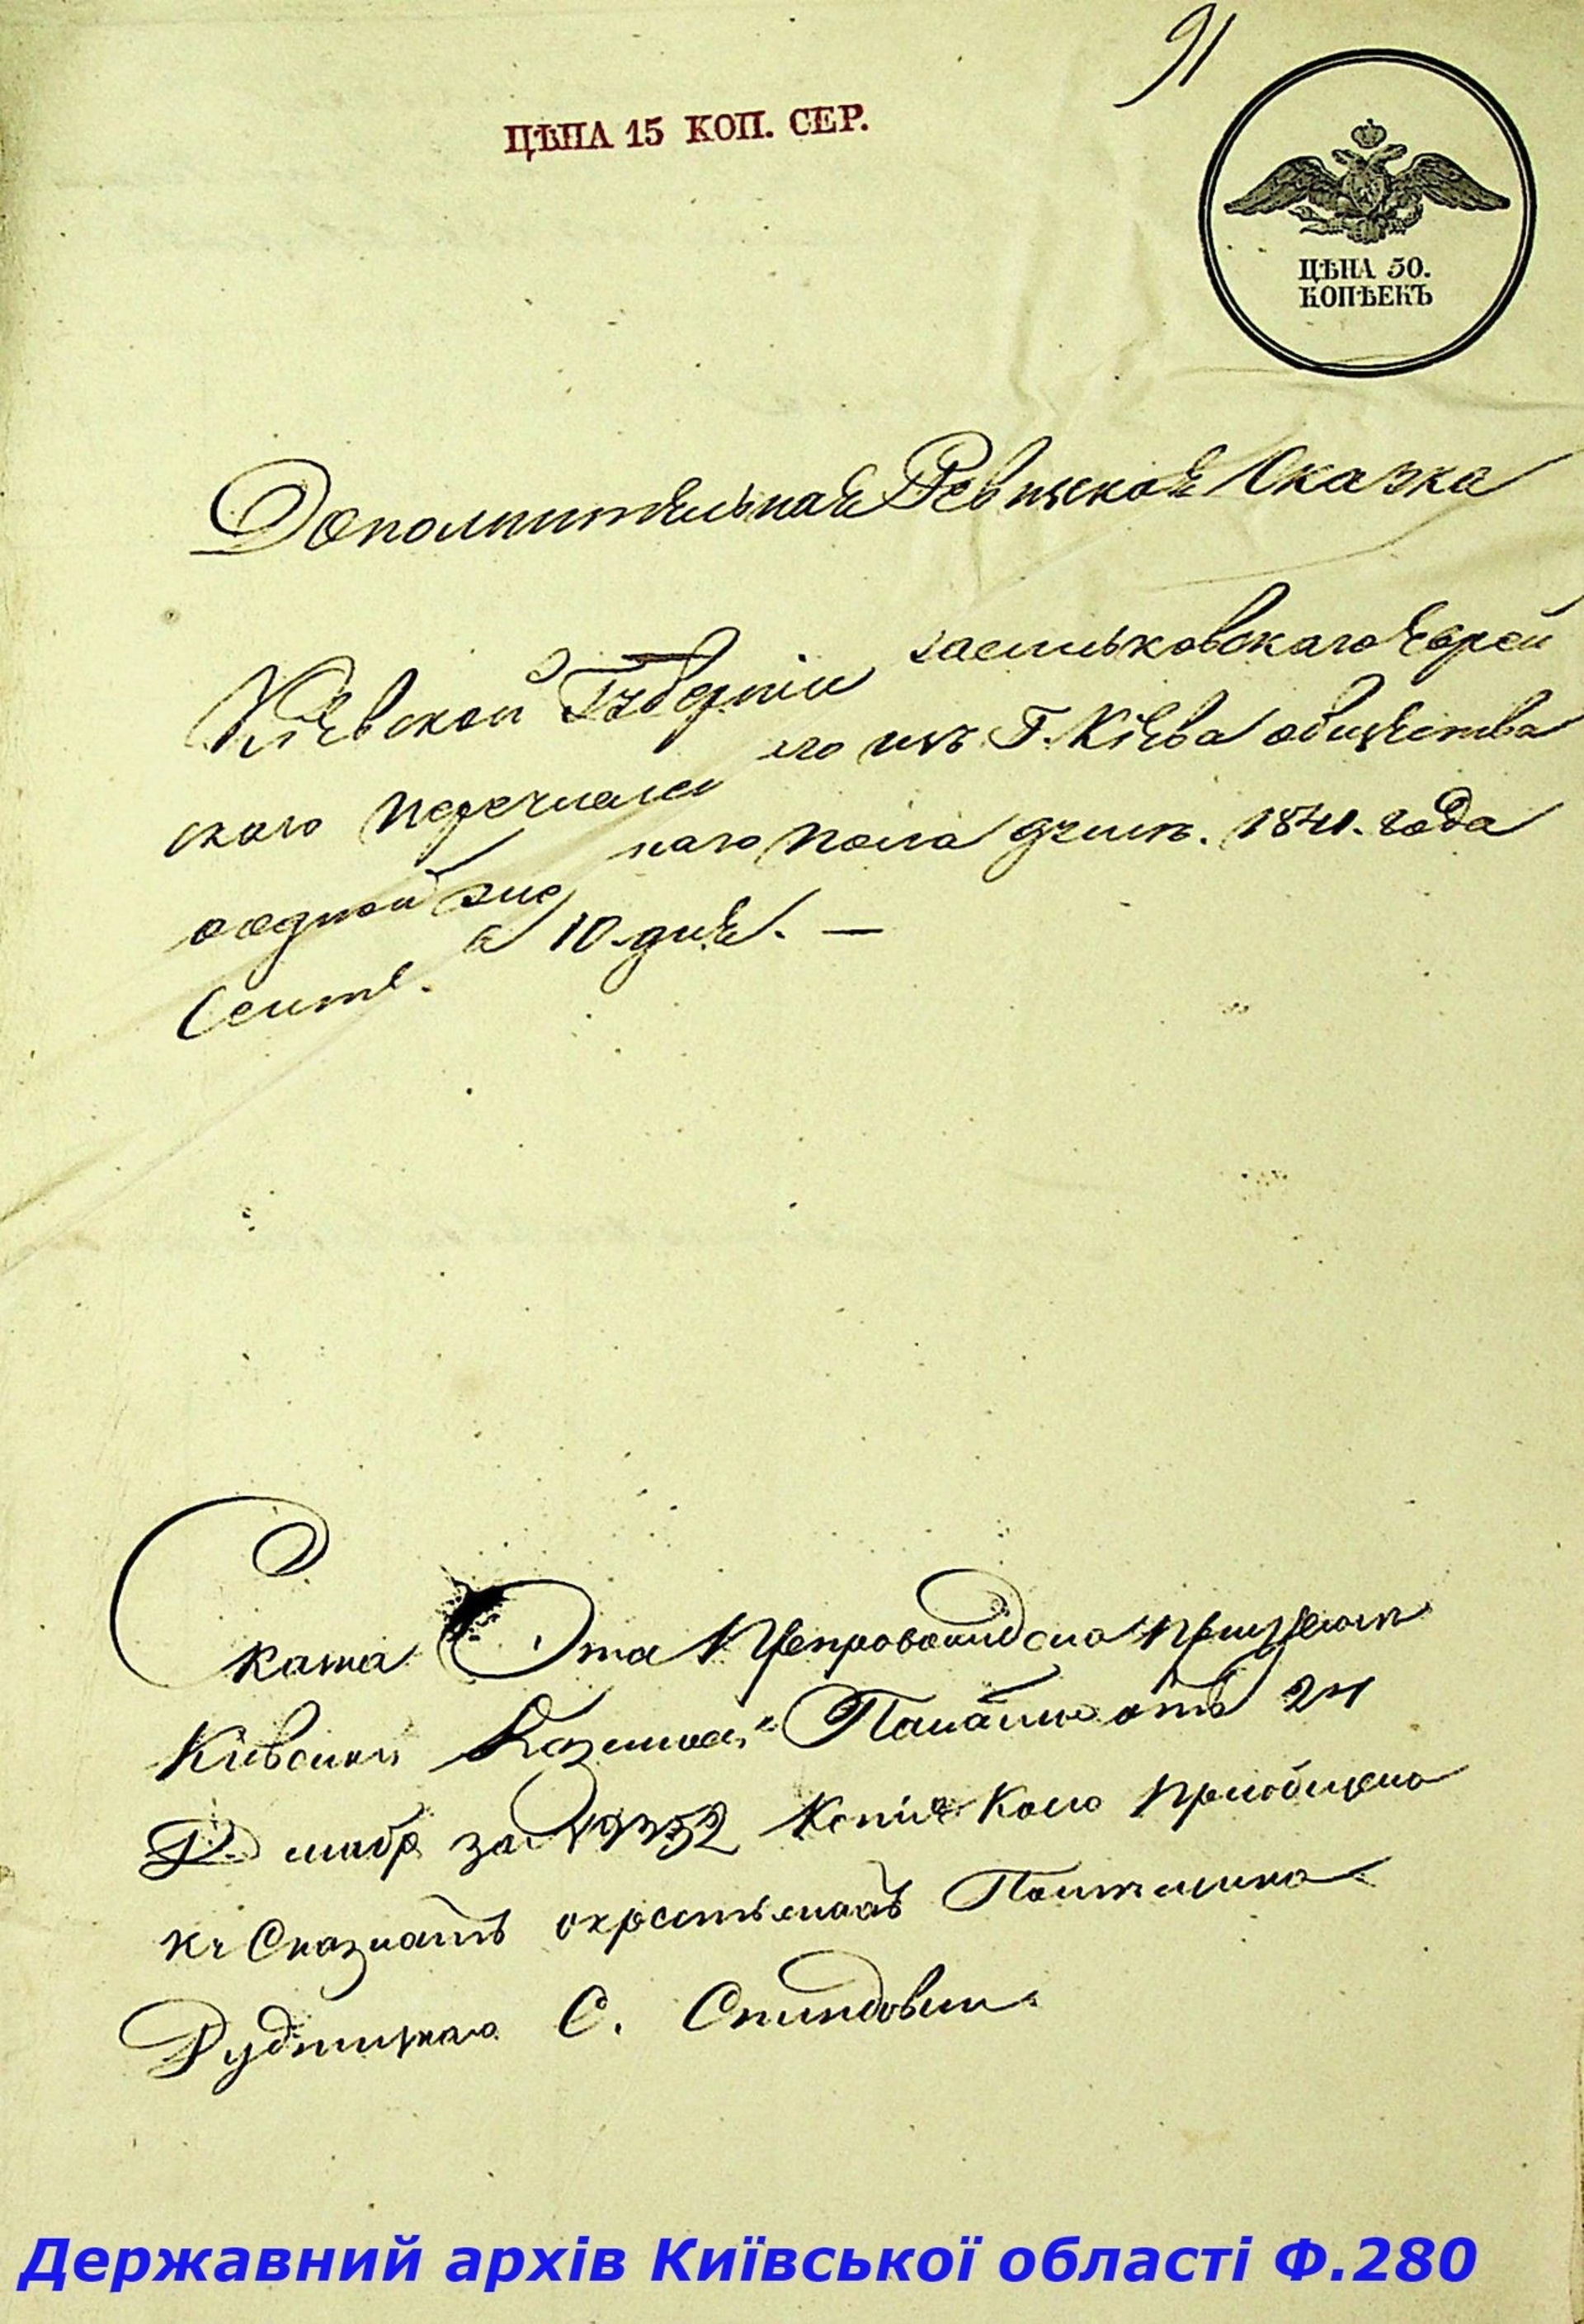 91
ЦѢНА 15 КОП. СЕР.
ЦѢНА 50.
КОПѢЕКЪ
Дополнительная Ревизская Сказка
Кіевской Губерніи васильковскаго Еврей
скаго перечислен его изъ Г. Кіева общества
о одной наго пола душъ. 1841. года
Сентб. а 10 дня. —
Скаска Эта Препровождена при
Кіевской Казенной Палаты отъ 24
за Копія коего пріобщена
къ о крестьянахъ Помещика
Рудницкаго С.
Державний архів Київської області Ф.280